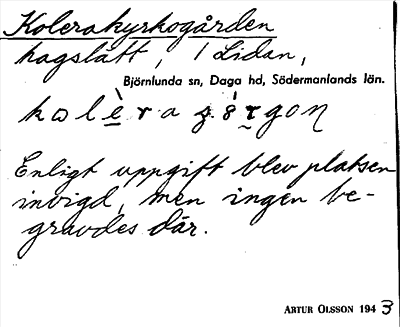 Kolerakyrkogården
hagslätt, i Lidan,
Björnlunda sn, Daga hd, Södermanlands län.
Enligt uppgift blev platsen
invigd, men ingen be-
gravdes där.
ARTUR OLSSON 1943